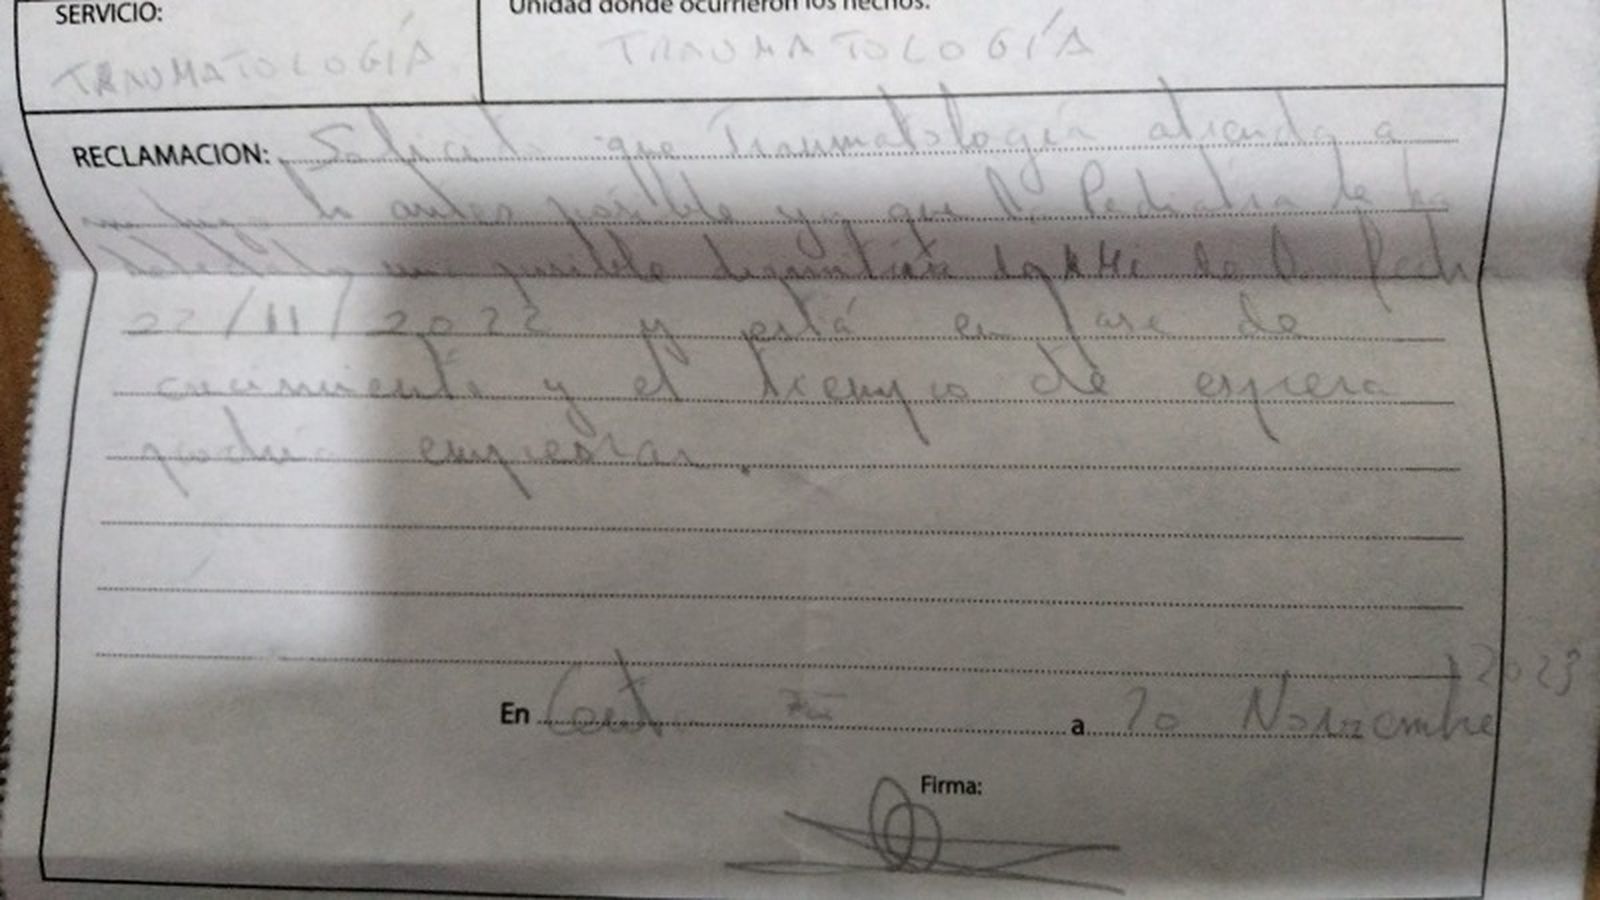 SERVICIO:
Unidad donde ocurrieron los hechos:
TRAUMATOLOGÍA
TRAUMATOLOGÍA
RECLAMACION: Solicito que Traumatología atienda a
lo antes posible ya que la Pediatra le ha
una posible de la fecha
22/11/2022 y está en fase de
crecimiento y el tiempo de espera
podría empeorar.
2023
En a 20 Noviembre
Firma: